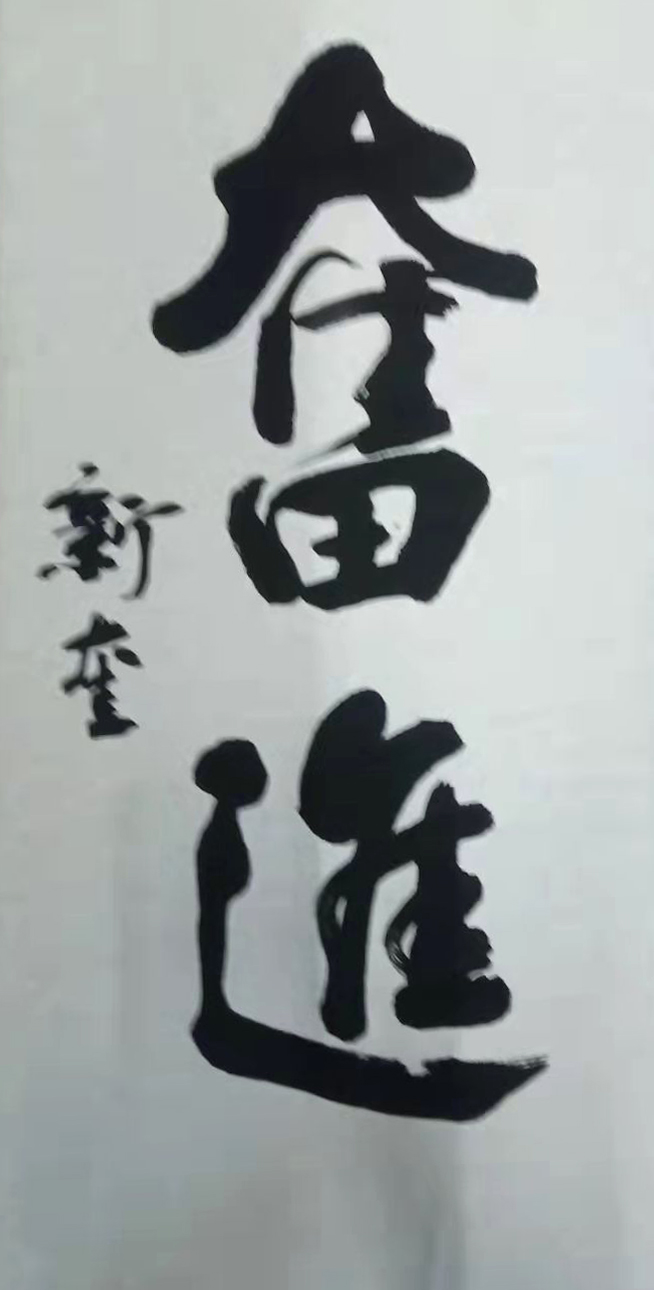 奮進
新奎